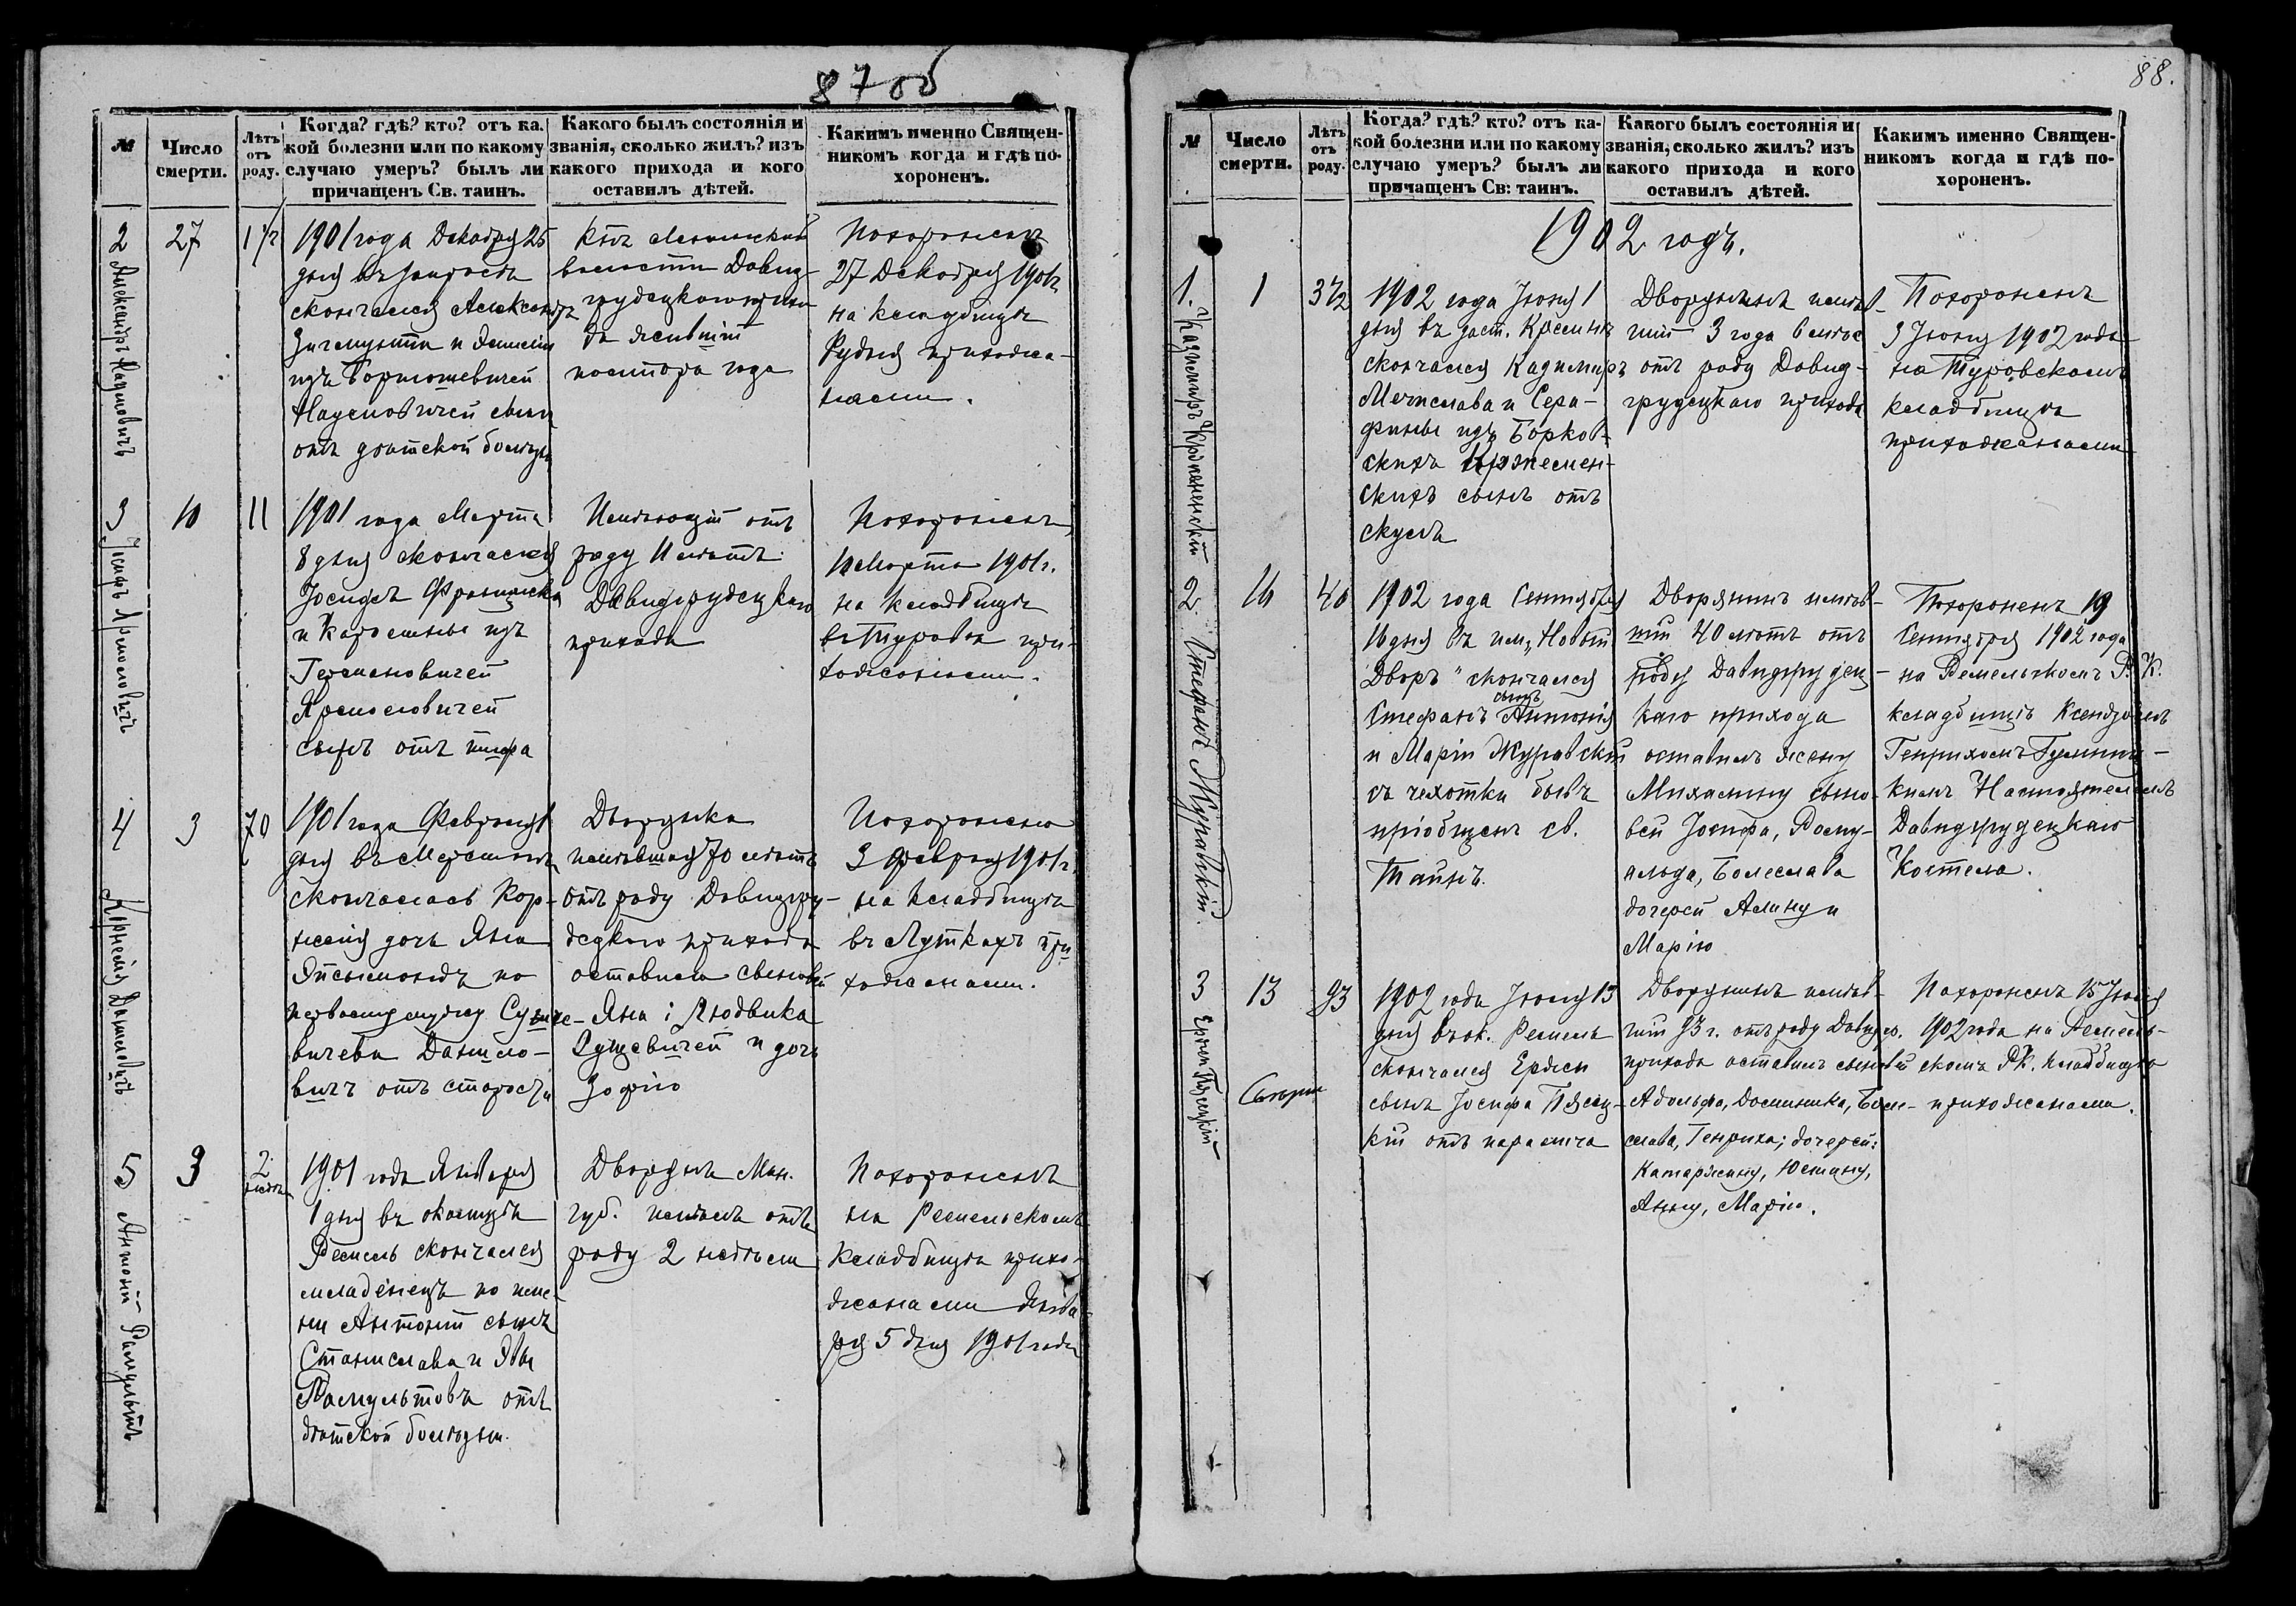 87 об
№
Число смерти.
Лѣтъ отъ роду.
Когда? гдѣ? кто? отъ ка-
кой болезни или по какому
случаю умеръ? былъ ли
причащенъ Св. таинъ.
Какого былъ состоянія и
званія, сколько жилъ? изъ
какого прихода и кого
оставилъ дѣтей.
Какимъ именно Священ-
никомъ когда и гдѣ по-
хороненъ.
2
Александръ Наумовичъ
27
1 1/2
1901 года Декабря 25
дня въ
скончался Александръ
Зигмунта и
изъ
Наумовичей сынъ
отъ дѣтской болѣзни
волости Давид-
грудецкаго прихо
да жившій
полтора года
Похороненъ
27 Декабря 1901 г.
на кладбищѣ
Рудня прихожа-
нами.
3
Іосифъ Ярмоловичъ
10
11
1901 года Марта
8 дня скончался
Іосифъ Франциска
и Каролины изъ
Германовичей
Ярмоловичей
сынъ отъ тифа
Имѣющій отъ
роду 11 лѣтъ
Давидгрудецкаго
прихода
Похороненъ
10 Марта 1901 г.
на кладбищѣ
въ Туровѣ при-
хожанами.
4
Корнелія Даниловичъ
3
70
1901 года Февраля 1
дня въ
скончалась Кор-
нелія дочь Яна
по
первому мужу
Данило-
вичъ отъ старости
Дворянка
имѣвшая 70 лѣтъ
отъ роду Давидгру-
децкаго прихода
оставила сыновей
Яна і Людвика
и дочь
Зофію
Похоронена
3 Февраля 1901 г.
на кладбищѣ
въ Луткахъ при
хожанами.
5
Антоній Рамультъ
3
2 недѣли
1901 года Января
1 дня въ околицѣ
Ремель скончался
младенецъ по име-
ни Антоній сынъ
Станислава и Евы
Рамультовъ отъ
дѣтской болѣзни.
Дворянъ Мин.
губ. имѣлъ отъ
роду 2 недѣли
Похороненъ
на Ремельскомъ
кладбищѣ прихо-
жанами Янва-
ря 5 дня 1901 года
88.
№
Число смерти.
Лѣтъ отъ роду.
Когда? гдѣ? кто? отъ ка-
кой болезни или по какому
случаю умеръ? былъ ли
причащенъ Св: таинъ.
Какого былъ состоянія и
званія, сколько жилъ? изъ
какого прихода и кого
оставилъ дѣтей.
Какимъ именно Священ-
никомъ когда и гдѣ по-
хороненъ.
1902 годъ.
1.
Казимиръ Кржеменскій
1
3 1/2
1902 года Іюня 1
дня въ заст. Кремень
скончался Казимиръ
Мечислава и Сера-
фины изъ Борков-
скихъ Кржемен-
скихъ сынъ отъ
Дворянинъ имѣв-
шій 3 года 6 мѣс
отъ роду Давид-
грудецкаго прихода
Похороненъ
3 Іюня 1902 года
на Туровскомъ
кладбищѣ
прихожанами
2
Стефанъ Журавскій.
16
40
1902 года Сентября
16 дня въ им. „Новый
Дворъ" скончался
Стефанъ сынъ Антонія
и Маріи Журавскій
съ чехотки бывъ
пріобщенъ св.
Таинъ.
Дворянинъ имѣв-
шій 40 лѣтъ отъ
роду Давидгрудец-
каго прихода
оставилъ жену
Михалину сыно-
вей Іосифа, Рому-
альда, Болеслава
дочерей Алину и
Марію
Похороненъ 19
Сентября 1902 года
на Ремельскомъ Р. К.
кладбищѣ Ксендзомъ
Генрихомъ
Настоятелемъ
Давидгрудецкаго
Костела.
3
Ержи Пясецкій
13
93
1902 года Іюня 13
дня въ ок. Ремель
скончался Ержи
сынъ Іосифа Пясец-
кій отъ паралича
Дворянинъ имѣв-
шій 93 г. отъ роду Давидгр.
прихода оставилъ сыновей
Адольфа, Доминика, Боле-
слава, Генриха; дочерей:
Катаржину, Юстину,
Анну, Марію.
Похороненъ 15 Іюня
1902 года на Ремель-
скомъ Р.К. кладбищѣ
прихожанами.